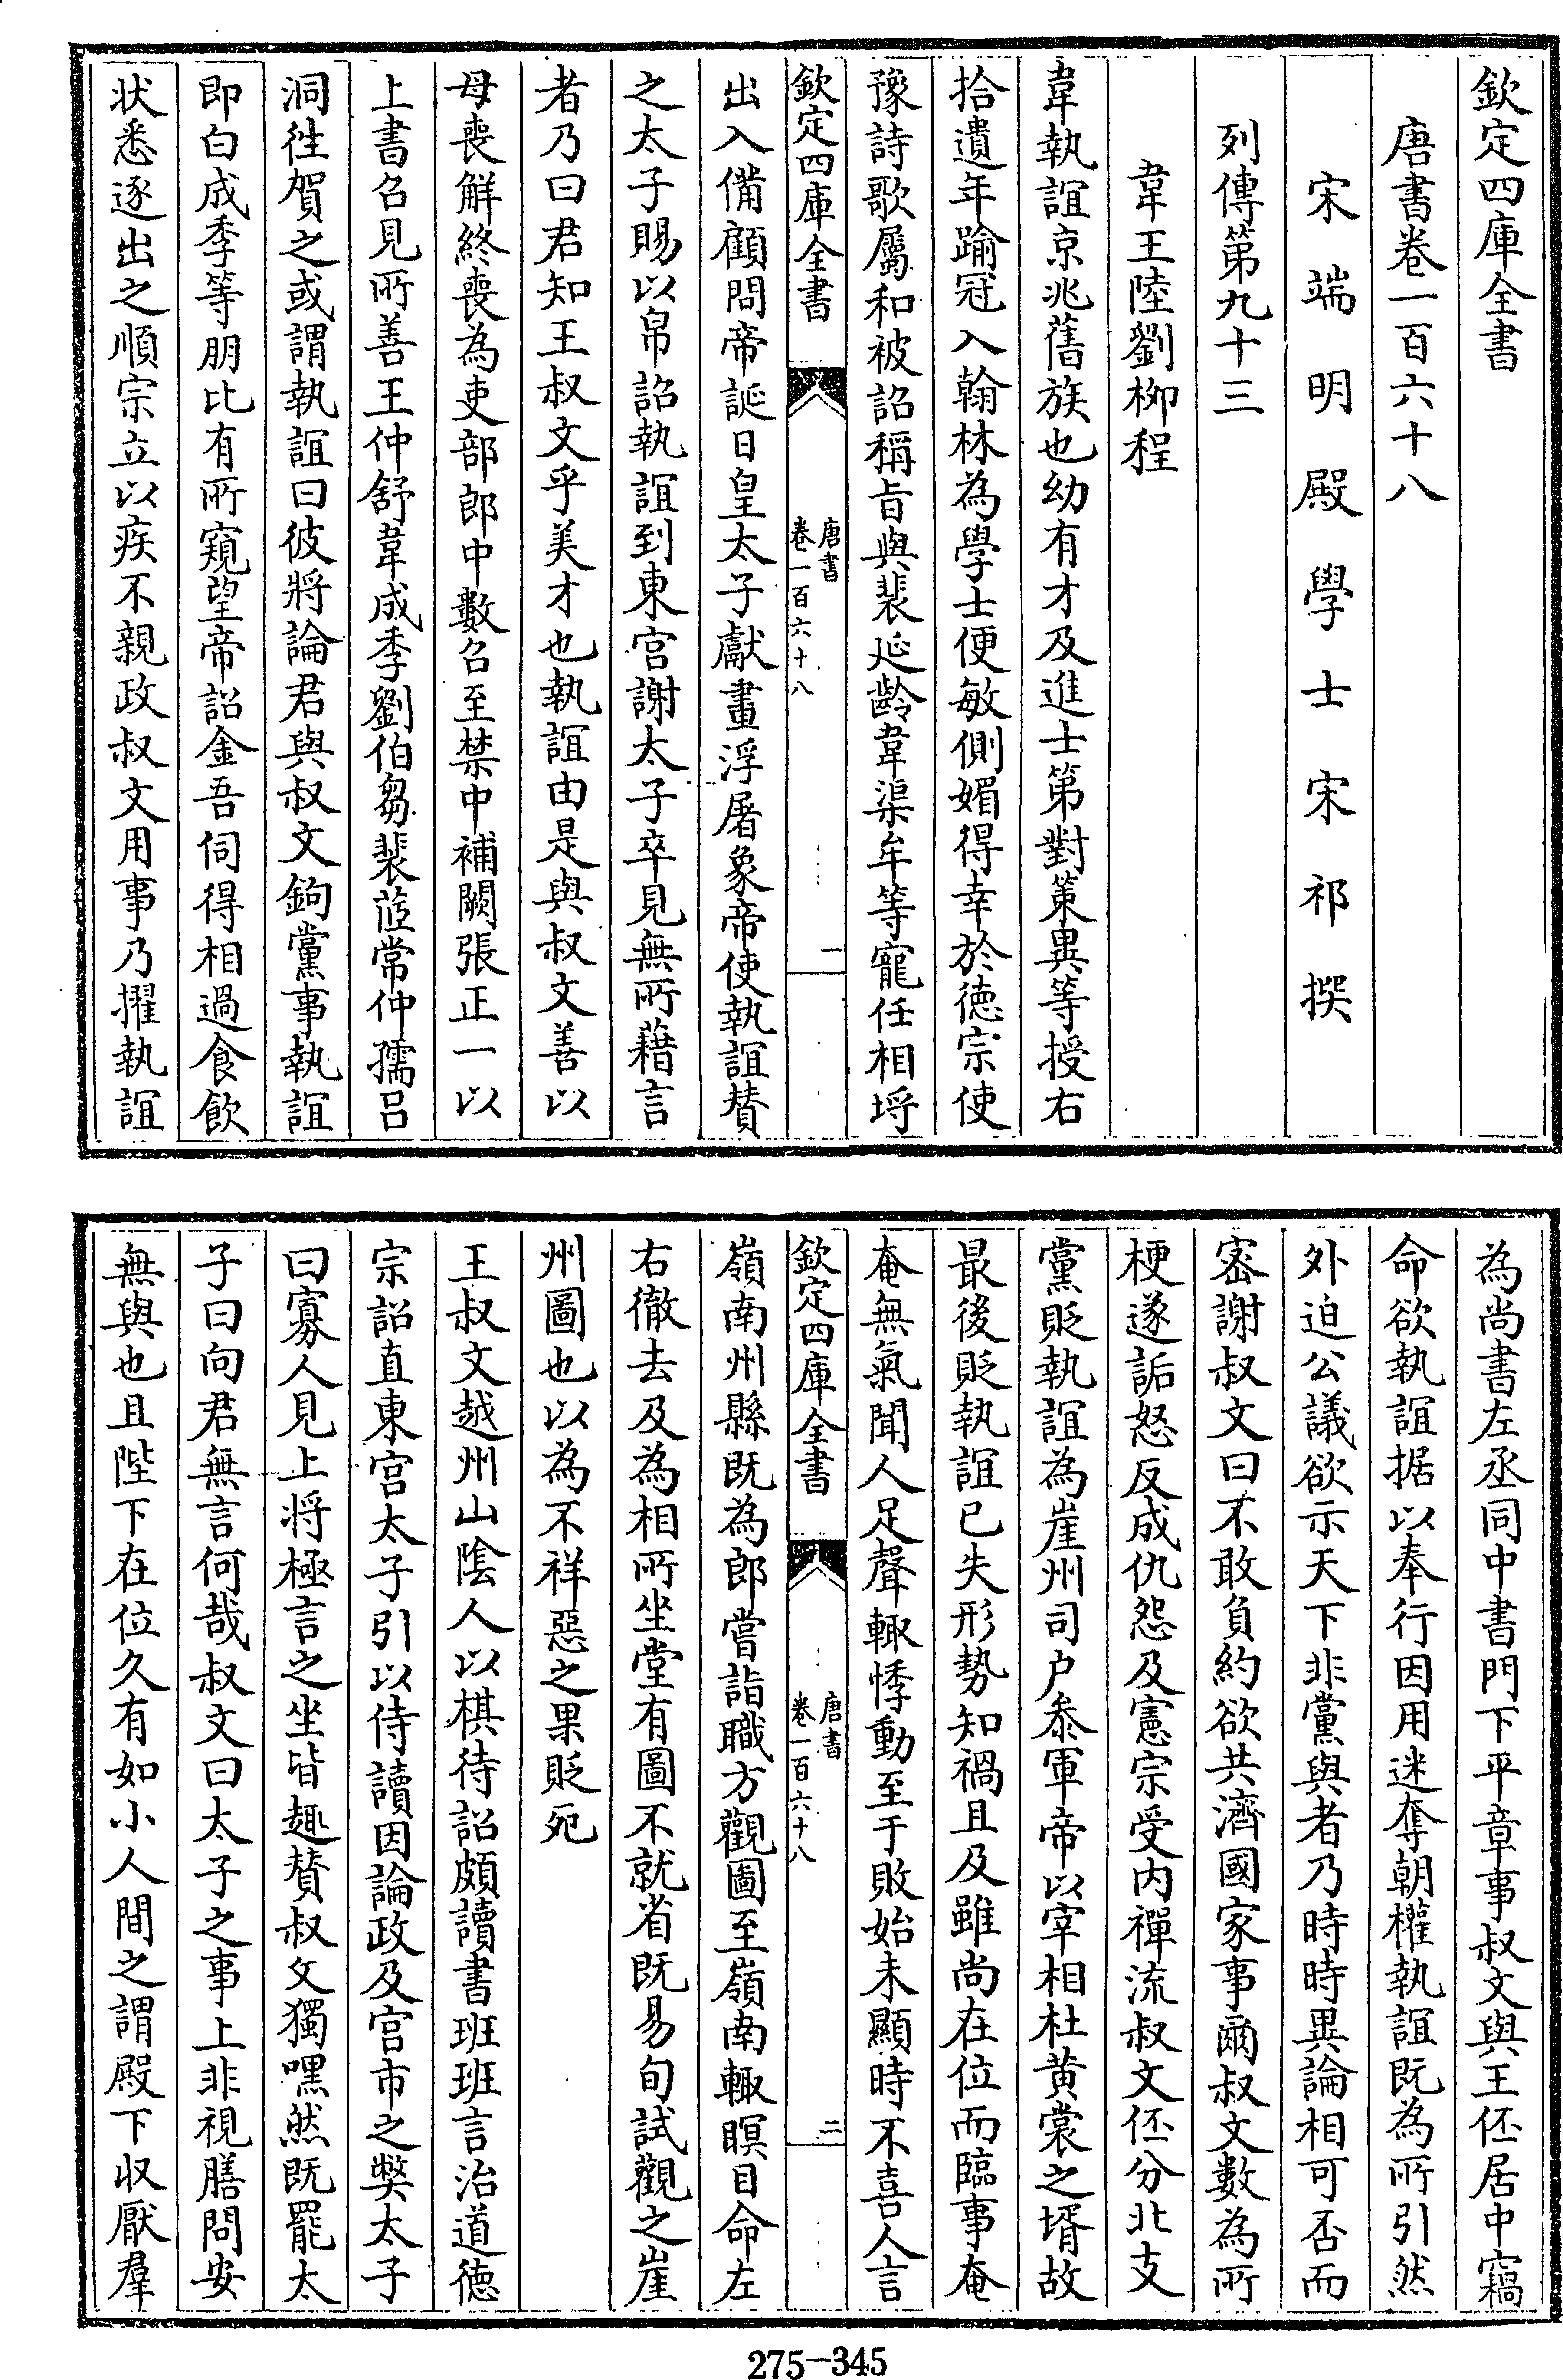 欽定四庫全書
唐書卷一百六十八
宋端明殿學士宋祁撰
列傳第九十三
韋王陸劉栁程
韋執誼京兆舊族也幼有才及進士第對策異等授右
拾遺年踰冠入翰林為學士便敏側媚得幸於徳宗使
豫詩歌屬和被詔稱旨與裴延齡韋渠牟等寵任相埒
欽定四庫全書
唐書
卷一百六十八
一
出入備顧問帝誕日皇太子獻畫浮屠象帝使執誼賛
之太子賜以帛詔執誼到東宫謝太子卒見無所藉言
者乃曰君知王叔文乎美才也執誼由是與叔文善以
母喪解終喪為吏部郎中數召至禁中補闕張正一以
上書召見所善王仲舒韋成季劉伯芻裴茝常仲孺吕
洞徃賀之或謂執誼曰彼將論君與叔文鉤黨事執誼
即白成季等朋比有所窺望帝詔金吾伺得相過食飲
状悉逐出之順宗立以疾不親政叔文用事乃擢執誼
為尚書左丞同中書門下平章事叔文與王伾居中竊
命欲執誼据以奉行因用迷奪朝權執誼既為所引然
外迫公議欲示天下非黨與者乃時時異論相可否而
宻謝叔文曰不敢負約欲共濟國家事爾叔文數為所
梗遂詬怒反成仇怨及憲宗受内禪流叔文伾分北支
黨貶執誼為崖州司户叅軍帝以宰相杜黄裳之壻故
最後貶執誼已失形勢知禍且及雖尚在位而臨事奄
奄無氣聞人足聲輙悸動至于敗始未顯時不喜人言
欽定四庫全書
唐書
卷一百六十八
二
嶺南州縣既為郎嘗詣職方觀圖至嶺南輙瞑目命左
右徹去及為相所坐堂有圖不就省既易旬試觀之崖
州圖也以為不祥惡之果貶死
王叔文越州山隂人以棋待詔頗讀書班班言治道徳
宗詔直東宫太子引以侍讀因論政及宫市之獘太子
曰寡人見上将極言之坐皆趣賛叔文獨嘿然既罷太
子曰向君無言何哉叔文曰太子之事上非視膳問安
無與也且陛下在位久有如小人間之謂殿下収厭羣
275-345